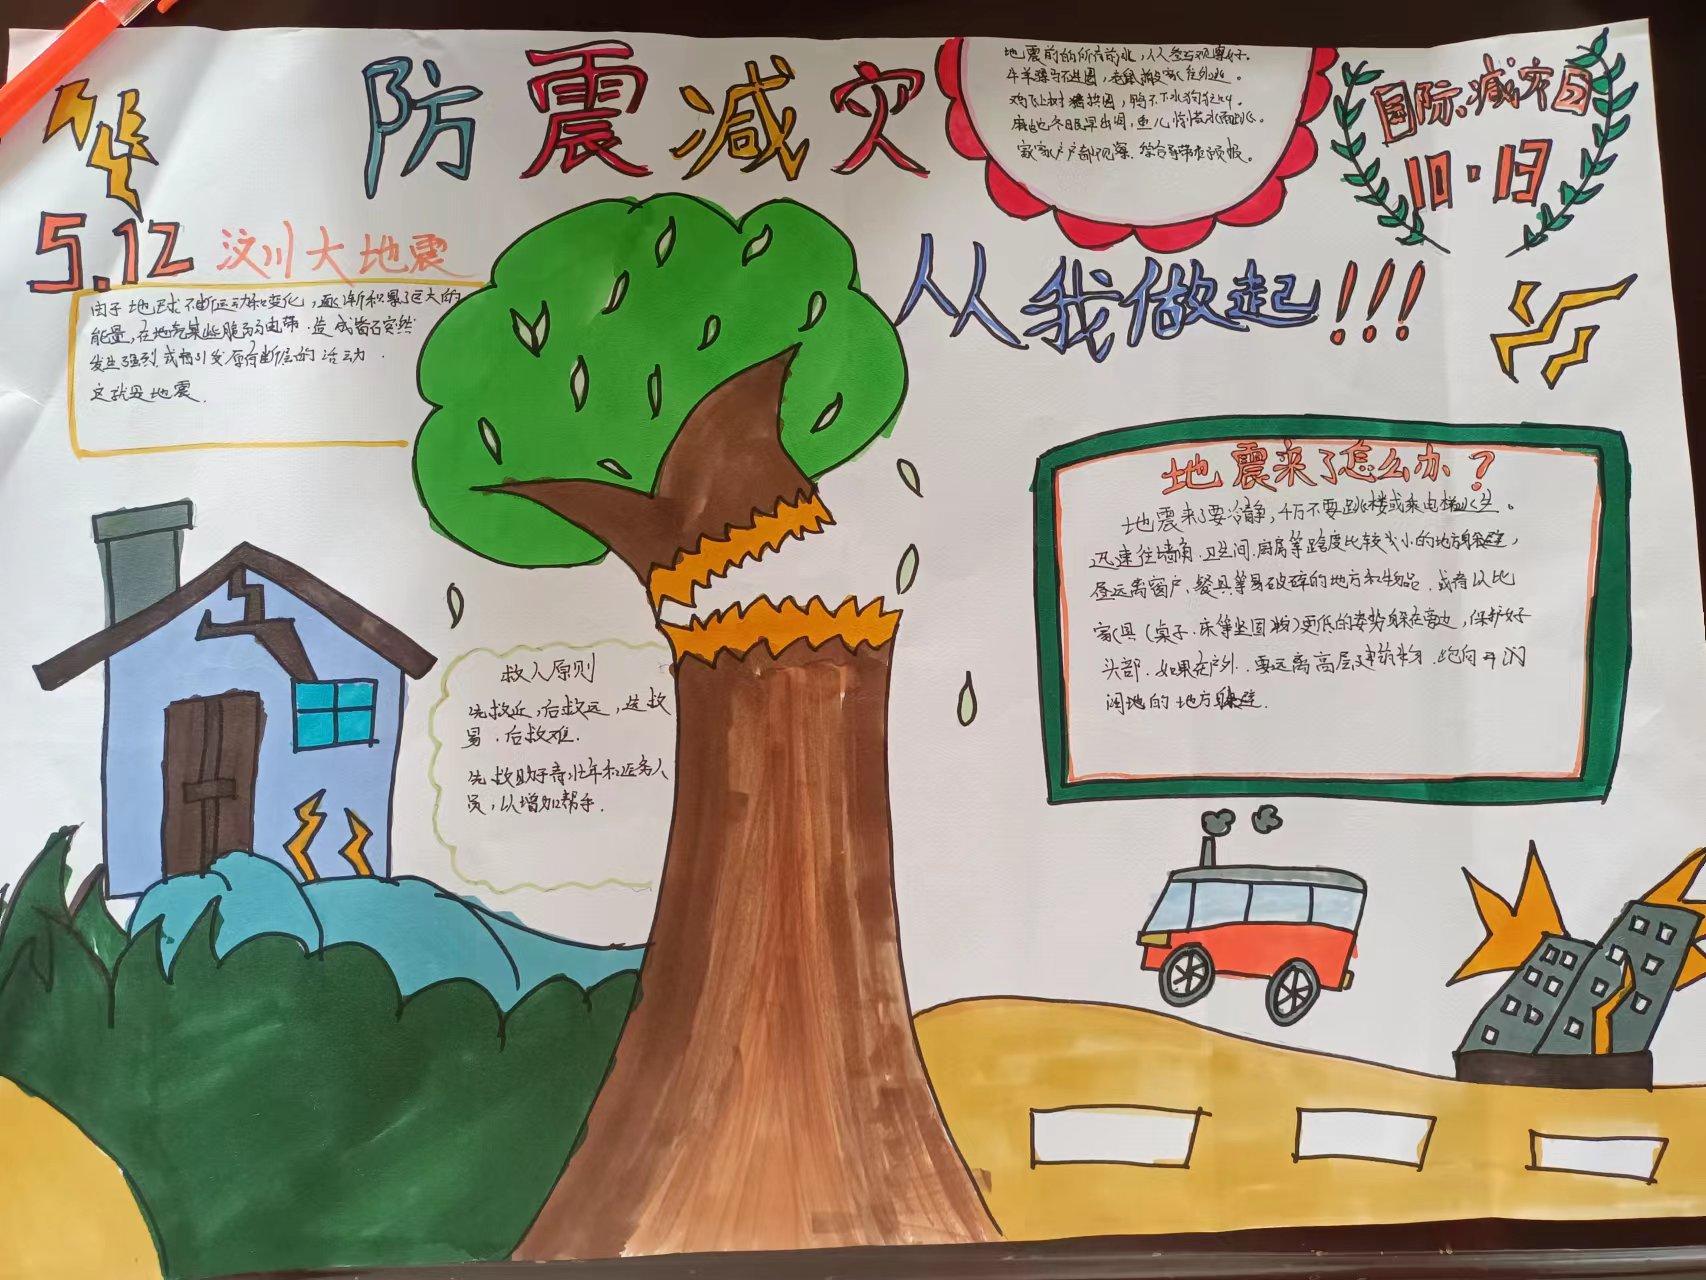 防震减灾
地震前的所有前兆，人人参与观察好。
牛羊骡马不进圈，老鼠搬家往外逃。
鸡飞上树猪拱圈，鸭不下水狗狂叫。
麻蛇冬眠早出洞，鱼儿惊惶水面跳。
家家户户都观察，综合异常报预报。
国际减灾日
10.13
5.12 汶川大地震
从我做起!!!
由于地球不断运动和变化，逐渐积累了巨大的
能量，在地壳某些脆弱地带，造成岩石突然
发生强烈或者引发原有断层的活动．
这就是地震．
地震来了怎么办？
地震来了要冷静，千万不要跳楼或乘电梯逃生。
迅速往墙角．卫生间．厨房等跨度比较小的地方躲避，
远离窗户．餐具等易破碎的地方和物品．或者以比
家具（桌子．床等坚固物）更低的姿势躲在旁边，保护好
头部．如果在户外．要远离高层建筑物．跑向开阔
阔地的地方躲避．
救人原则
先救近，后救远，先救
易．后救难．
先救助于青壮年和医务人
员，以增加帮手．